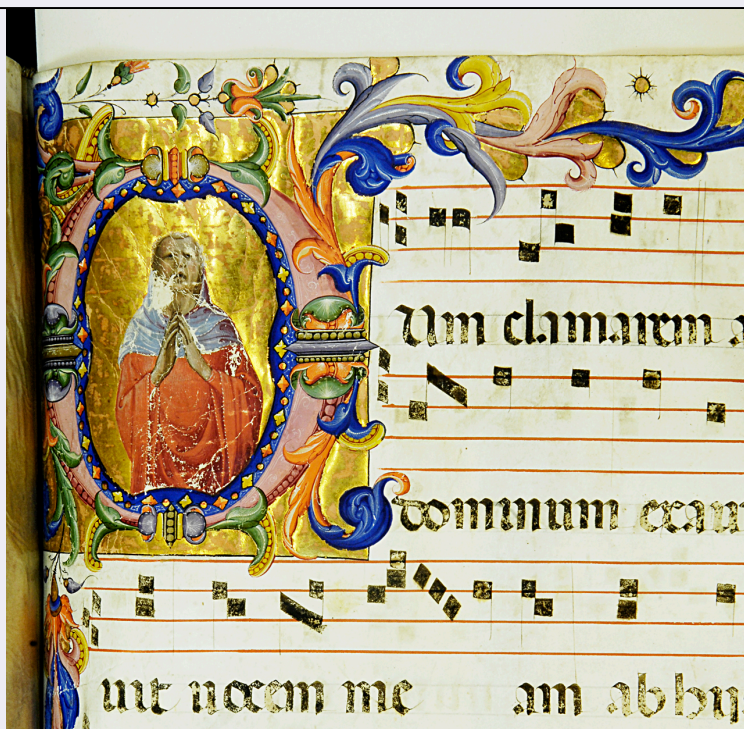 DUm clamarem a
dominum exau
uit uocem me am ab hij